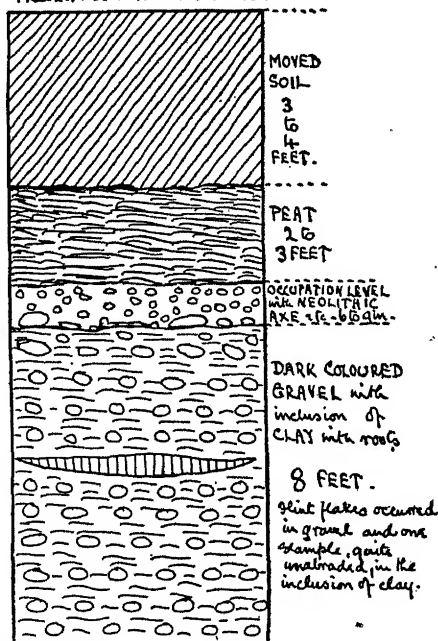 MOVED
SOIL
3
to
4
FEET.
PEAT
2 to
3 FEET
OCCUPATION LEVEL
with NEOLITHIC
AXE etc - 6 to 9 in.
DARK COLOURED
GRAVEL with
inclusion of
CLAY with roots
8 FEET.
Flint flakes occurred
in gravel and one
example, quite
unabraded, in the
inclusion of clay.